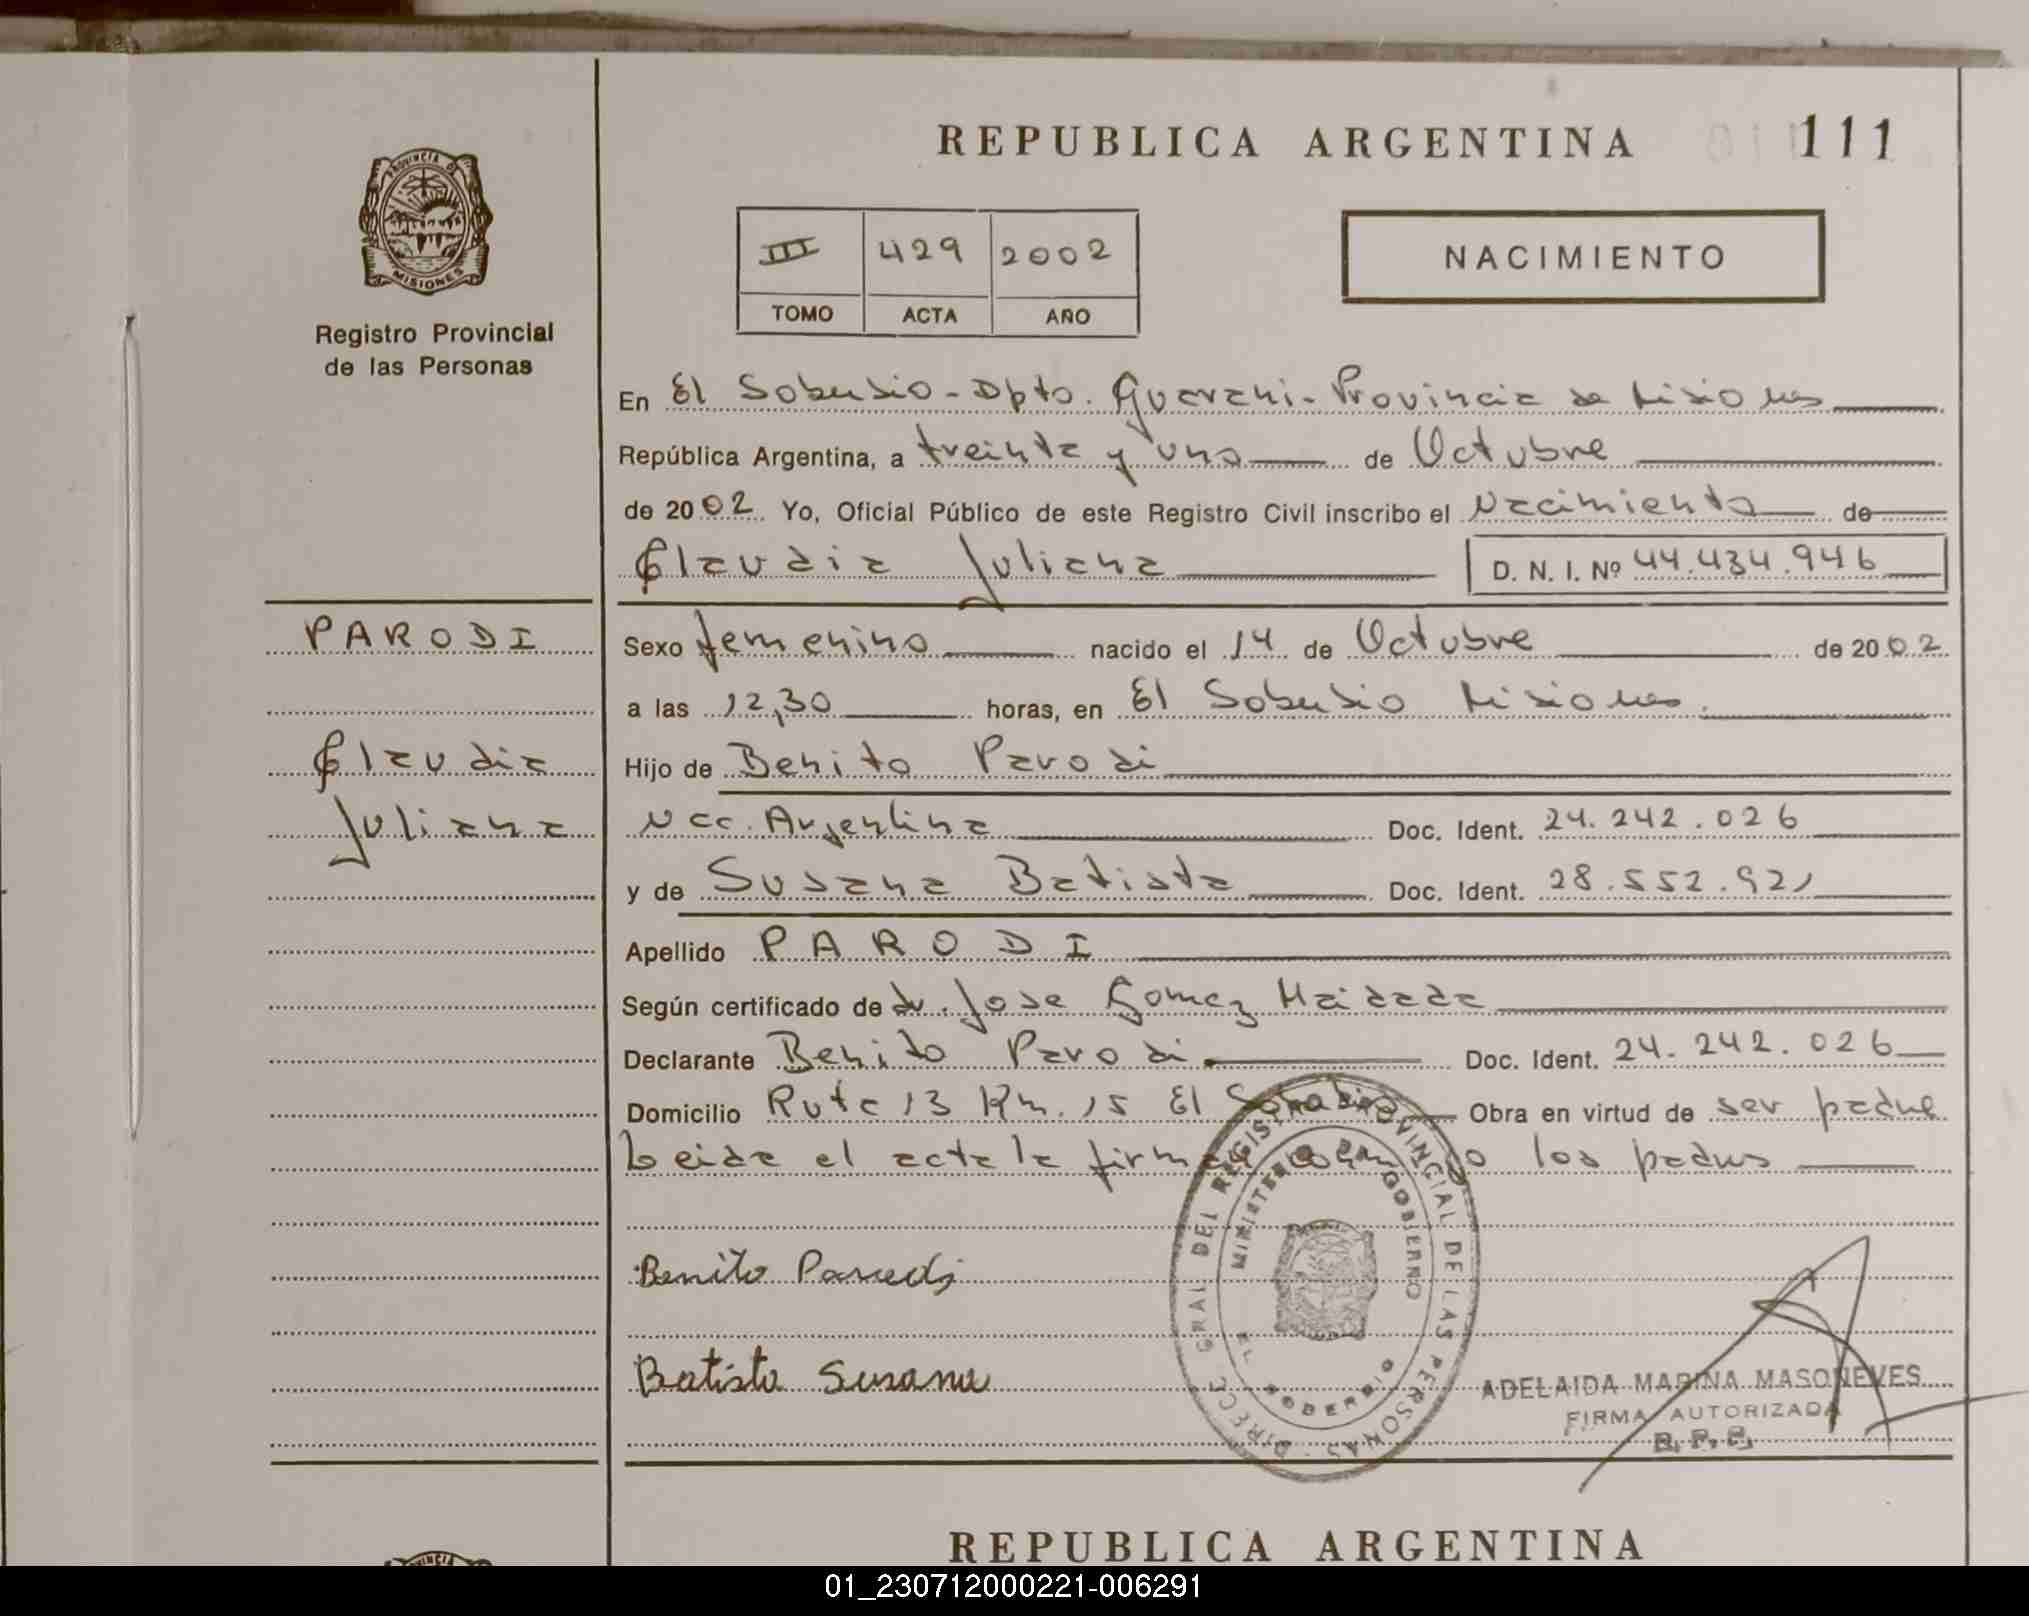 REPUBLICA ARGENTINA 111
PROVINCIA DE
MISIONES
Registro Provincial
de las Personas
III 429 2002
TOMO ACTA AÑO
NACIMIENTO
En El Soberbio - Dpto. Guarani - Provincia de Misiones
República Argentina, a treinta y uno de Octubre
de 2002 Yo, Oficial Público de este Registro Civil inscribo el Nacimiento de
Claudia Juliana D. N. I. Nº 44.434.946
PARODI
Claudia
Juliana
Sexo femenino nacido el 14 de Octubre de 2002
a las 12,30 horas, en El Soberbio Misiones.
Hijo de Benito Parodi
Nac. Argentina Doc. Ident. 24.242.026
y de Susana Batista Doc. Ident. 28.552.921
Apellido PARODI
Según certificado de dr. Jose Gomez Haidada
Declarante Benito Parodi Doc. Ident. 24.242.026
Domicilio Ruta 13 Km. 15 El Soberbio Obra en virtud de ser padre
Leida el acta la firman los padres
Benito Parodi
Batista Susana
DIRECC. GRAL DEL REGISTRO PROVINCIAL DE LAS PERSONAS
MINISTERIO DE GOBIERNO
EL SOBERBIO
ADELAIDA MARINA MASONEVES
FIRMA AUTORIZADA
R. P. P.
REPUBLICA ARGENTINA
01_230712000221-006291